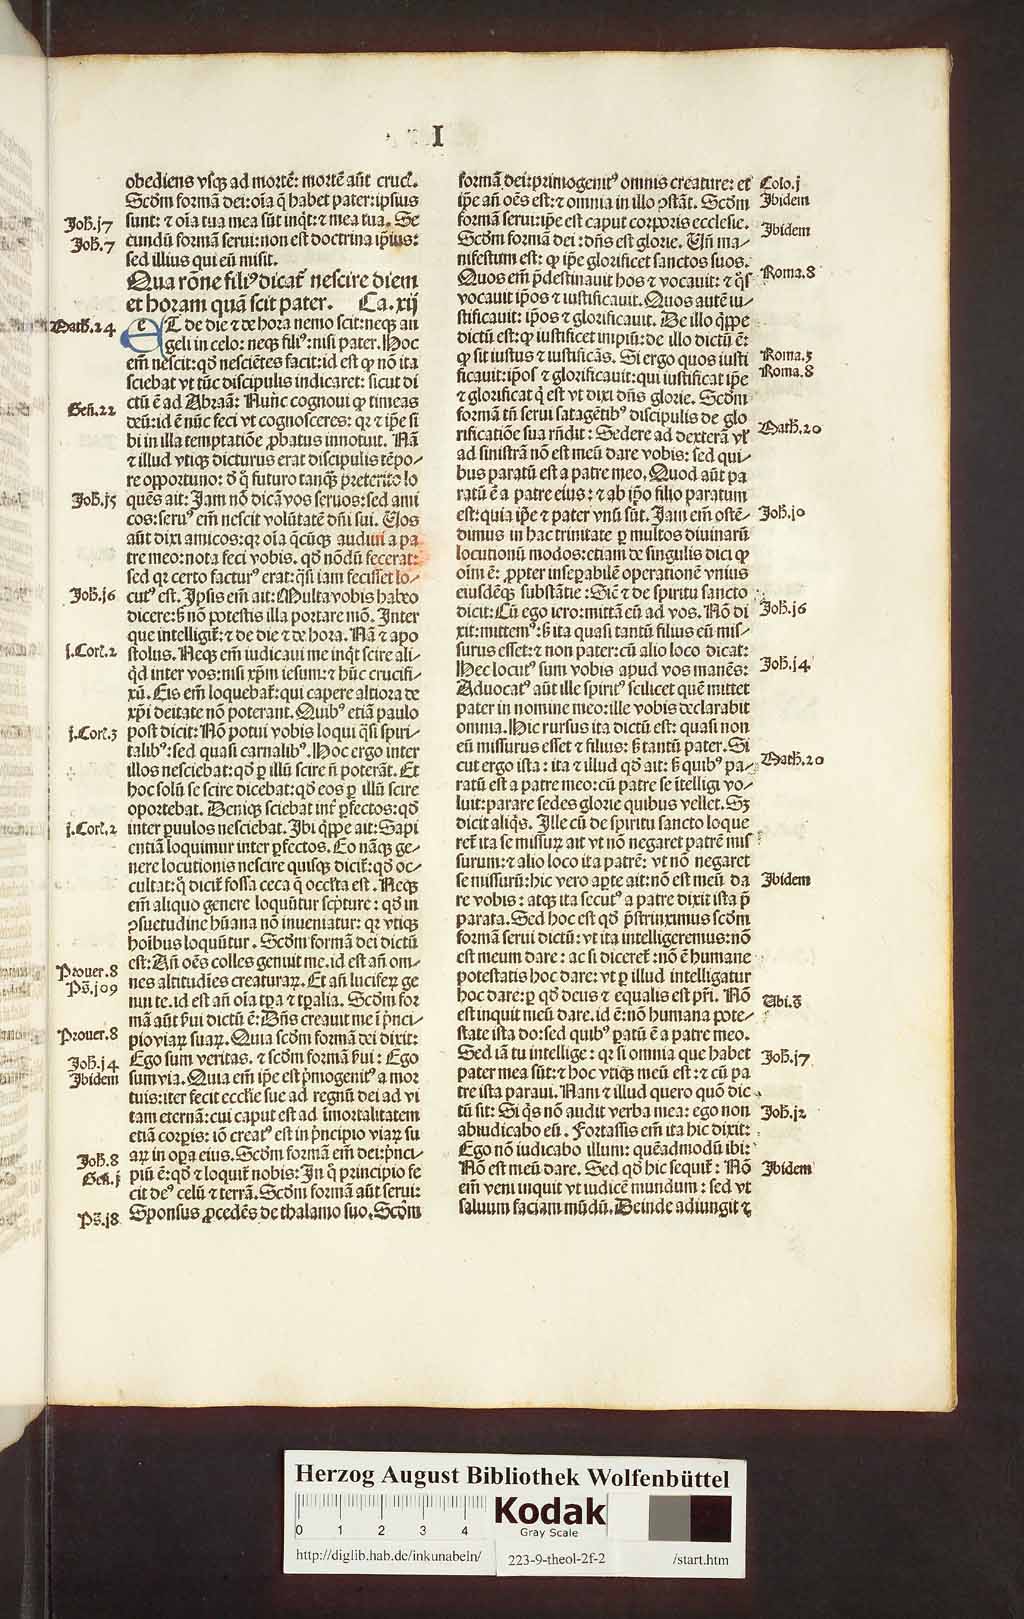 I
obediens vsqꝫ ad mortē: mortē aūt crucꝭ.
Scd̄m formā dei: oīa q̄ habet pater: ipsius
Joħ.j7 sunt: ⁊ oīa tua mea sūt inqͥt: ⁊ mea tua. Se
Joħ.7 cundū formā serui: non est doctrina ip̄ius:
sed illius qui eū misit.
Qua rōne filiꝰ dicat̄ nescire diem
et horam quā scit pater. Ca.xij
Math.24 eT de die ⁊ de hora nemo scit: neqꝫ an
geli in celo: neqꝫ filiꝰ: nisi pater. Hoc
em̄ nescit: qd̄ nesciētes facit: id est ꝙ nō ita
sciebat vt tūc discipulis indicaret: sicut di
Geñ.22 ctū ē ad Abraā: Nunc cognoui ꝙ timeas
deū: id ē nūc feci vt cognosceres: qꝛ ⁊ ip̄e si
bi in illa temptatiōe ꝓbatus innotuit. Nā
⁊ illud vtiqꝫ dicturus erat discipulis tēpo⸗
re opportuno: d̄ q̄ futuro tanqꝫ preterito lo
Joħ.j5 quēs ait: Jam nō dicā vos seruos: sed ami
cos: seruꝰ em̄ nescit volūtatē dn̄i sui. Vos
aūt dixi amicos: qꝛ oīa q̄cūqꝫ audiui a pa
tre meo: nota feci vobis. qd̄ nōdū fecerat:
sed qꝛ certo facturꝰ erat: qͣsi iam fecisset lo⸗
Joħ.j6 cutꝰ est. Ipsis em̄ ait: Multa vobis habeo
dicere: sꝫ nō potestis illa portare mō. Inter
que intelligit̄: ⁊ de die ⁊ de hora. Nā ⁊ apo
j.Cor.2 stolus. Neqꝫ em̄ iudicaui me inqͥt scire ali⸗
qͥd inter vos: nisi xp̄m iesum: ⁊ hūc crucifi⸗
xū. Eis em̄ loquebat̄: qui capere altiora de
xp̄i deitate nō poterant. Quibꝰ etiā paulo
j.Cor.3 post dicit: Nō potui vobis loqui qͣsi spiri⸗
talibꝰ: sed quasi carnalibꝰ. Hoc ergo inter
illos nesciebat: qd̄ ꝑ illū scire ñ poterāt. Et
hoc solū se scire dicebat: qd̄ eos ꝑ illū scire
oportebat. Deniqꝫ sciebat int̄ ꝑfectos: qd̄
j.Cor.2 inter ꝑuulos nesciebat. Ibi qͥppe ait: Sapi
entiā loquimur inter ꝑfectos. Eo nāqꝫ ge⸗
nere locutionis nescire quisqꝫ dicit̄: qd̄ oc⸗
cultat: q̄ dicit̄ fossa ceca q̄ occl̄ta est. Neqꝫ
em̄ aliquo genere loquūtur scͥpture: qd̄ in
ꝯsuetudine hūana nō inueniatur: qꝛ vtiqꝫ
hoībus loquūtur. Scd̄m formā dei dictū
est: Añ oēs colles genuit me. id est añ om⸗
Prouer.8 nes altitudīes creaturaꝝ. Et añ luciferꝝ ge
Ps̄.j09 nui te. id est añ oīa tꝑa ⁊ tꝑalia. Scd̄m for
mā aūt s̄ui dictū ē: Dn̄s creauit me ī pͥnci⸗
Prouer.8 pio viaꝝ suaꝝ. Quia scd̄m formā dei dixit:
Joħ.j4 Ego sum veritas. ⁊ scd̄m formā s̄ui: Ego
Ibidem sum via. Quia em̄ ip̄e est pͥmogenitꝰ a mor
tuis: iter fecit ecclīe sue ad regnū dei ad vi
tam eternā: cui caput est ad īmortalitatem
etiā corꝑis: iō creatꝰ est in pͥncipio viaꝝ su
aꝝ in oꝑa eius. Scd̄m formā em̄ dei: pͥnci⸗
Joħ.8 piū ē: qd̄ ⁊ loquit̄ nobis: In q̄ principio fe
Geñ.j cit deꝰ celū ⁊ terrā. Scd̄m formā aūt serui:
Ps̄.j8 Sponsus ꝓcedēs de thalamo suo. Scd̄m
formā dei: primogenitꝰ omnis creature: et Colo.j
ip̄e añ oēs est: ⁊ omnia in illo ꝯstāt. Scd̄m Ibidem
formā serui: ip̄e est caput corꝑoris ecclesie. Ibidem
Scd̄m formā dei: dn̄s est glorie. Vñ ma⸗
nifestum est: ꝙ ip̄e glorificet sanctos suos.
Quos em̄ p̄destinauit hos ⁊ vocauit: ⁊ qͦs Roma.8
vocauit ip̄os ⁊ iustificauit. Quos autē iu⸗
stificauit: ip̄os ⁊ glorificauit. De illo qͥppe
dictū est: ꝙ iustificet impiū: de illo dictū ē:
ꝙ sit iustus ⁊ iustificās. Si ergo quos iusti Roma.3
ficauit: ip̄os ⁊ glorificauit: qui iustificat ip̄e Roma.8
⁊ glorificat q̄ est vt dixi dn̄s glorie. Scd̄m
formā tñ serui satagētibꝰ discipulis de glo
rificatiōe sua rn̄dit: Sedere ad dexterā vl̄ Math.20
ad sinistrā nō est meū dare vobis: sed qui⸗
bus paratū est a patre meo. Quod aūt pa
ratū ē a patre eius: ⁊ ab ip̄o filio paratum
est: quia ip̄e ⁊ pater vnū sūt. Jam em̄ ostē⸗ Joħ.j0
dimus in hac trinitate ꝑ multos diuinarū
locutionū modos: etiam de singulis dici ꝙ
oīm ē: ꝓpter insepabilē operationē vnius
eiusdēqꝫ substātie: Sic̄ ⁊ de spiritu sancto
dicit: Cū ego iero: mittā eū ad vos. Nō di Joħ.j6
xit: mittemꝰ: sꝫ ita quasi tantū filius eū mis⸗
surus esset: ⁊ non pater: cū alio loco dicat:
Hec locutꝰ sum vobis apud vos manēs: Joħ.j4
Aduocatꝰ aūt ille spiritꝰ scilicet quē mittet
pater in nomine meo: ille vobis declarabit
omnia. Hic rursus ita dictū est: quasi non
eū missurus esset ⁊ filius: sꝫ tantū pater. Si
cut ergo ista: ita ⁊ illud qd̄ ait: sꝫ quibꝰ pa⸗ Math.20
ratū est a patre meo: cū patre se ītelligi vo⸗
luit: parare sedes glorie quibus vellet. Sꝫ
dicit aliqͥs. Ille cū de spiritu sancto loque
ret̄ ita se missuꝝ ait vt nō negaret patrē mis
surum: ⁊ alio loco ita patrē: vt nō negaret
se missurū: hic vero aꝑte ait: nō est meū da Ibidem
re vobis: atqꝫ ita secutꝰ a patre dixit ista p̄
parata. Sed hoc est qd̄ p̄strinximus scd̄m
formā serui dictū: vt ita intelligeremus: nō
est meum dare: ac si diceret̄: nō ē humane
potestatis hoc dare: vt ꝑ illud intelligatur
hoc dare: ꝑ qd̄ deus ⁊ equalis est pr̄i. Nō Vbi.s̄
est inquit meū dare. id ē: nō humana pote⸗
state ista do: sed quibꝰ ꝑatū ē a patre meo.
Sed iā tu intellige: qꝛ si omnia que habet Joħ.j7
pater mea sūt: ⁊ hoc vtiqꝫ meū est: ⁊ cū pa
tre ista paraui. Nam ⁊ illud quero quō dic
tū sit: Si qͥs nō audit verba mea: ego non Joħ.j2
abiudicabo eū. Fortassis em̄ ita hic dixit:
Ego nō iudicabo illum: quēadmodū ibi:
Nō est meū dare. Sed qd̄ hic sequit̄: Nō Ibidem
em̄ veni inquit vt iudicē mundum: sed vt
saluum faciam mūdū. Deinde adiungit ⁊
Herzog August Bibliothek Wolfenbüttel
0 1 2 3 4
Kodak
Gray Scale
http://diglib.hab.de/inkunabeln/ 223-9-theol-2f-2 /start.htm